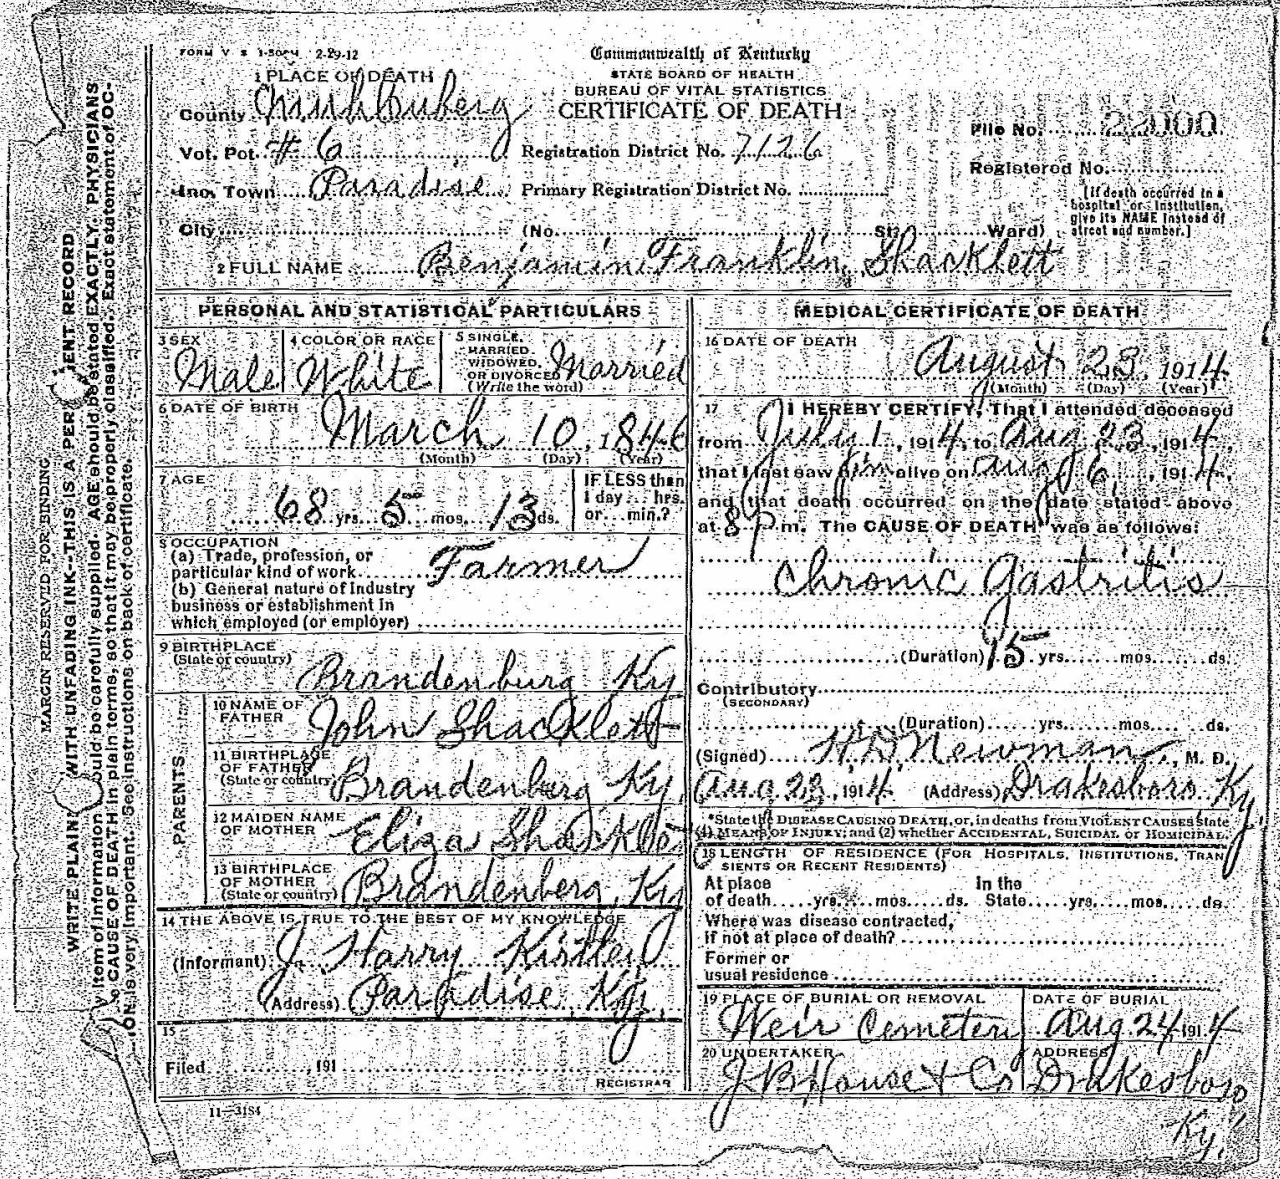 FORM V S 1-50M 2-29-12
Commonwealth of Kentucky
STATE BOARD OF HEALTH
BUREAU OF VITAL STATISTICS
CERTIFICATE OF DEATH
1 PLACE OF DEATH
County Muhlenberg
Vot. Pct. # 6
Registration District No. 7126
Inc. Town Paradise
Primary Registration District No.
City (No. St. Ward)
File No. 22000
Registered No.
[If death occurred in a
hospital or institution,
give its NAME instead of
street and number.]
2 FULL NAME Benjamin Franklin Shacklett
PERSONAL AND STATISTICAL PARTICULARS
3 SEX
Male
4 COLOR OR RACE
White
5 SINGLE,
MARRIED,
WIDOWED,
OR DIVORCED
(Write the word)
Married
6 DATE OF BIRTH
March 10, 1846
(Month) (Day) (Year)
7 AGE
68 yrs. 5 mos. 13 ds.
IF LESS than
1 day... hrs.
or... min.?
8 OCCUPATION
(a) Trade, profession, or
particular kind of work Farmer
(b) General nature of industry
business or establishment in
which employed (or employer)
9 BIRTHPLACE
(State or country)
Brandenburg Ky
PARENTS
10 NAME OF
FATHER
John Shacklett
11 BIRTHPLACE
OF FATHER
(State or country)
Brandenberg Ky.
12 MAIDEN NAME
OF MOTHER
Eliza Shacklet
13 BIRTHPLACE
OF MOTHER
(State or country)
Brandenberg, Ky
14 THE ABOVE IS TRUE TO THE BEST OF MY KNOWLEDGE
(Informant) J. Harry Kirtley
(Address) Paradise, Ky.
15
Filed 191
REGISTRAR
11-3184
MEDICAL CERTIFICATE OF DEATH
16 DATE OF DEATH
August 23, 1914
(Month) (Day) (Year)
17 I HEREBY CERTIFY, That I attended deceased
from July 1, 1914, to Aug 23, 1914,
that I last saw him alive on Aug 6, 1914,
and that death occurred on the date stated above
at 8 p.m. The CAUSE OF DEATH was as follows:
Chronic Gastritis
(Duration) 15 yrs. mos. ds.
Contributory
(SECONDARY)
(Duration) yrs. mos. ds.
(Signed) H.D. Newman, M. D.
Aug 23, 1914 (Address) Drakesboro Ky.
*State the DISEASE CAUSING DEATH, or, in deaths from VIOLENT CAUSES state
(1) MEANS OF INJURY; and (2) whether ACCIDENTAL, SUICIDAL or HOMICIDAL.
18 LENGTH OF RESIDENCE (FOR HOSPITALS, INSTITUTIONS, TRAN
SIENTS OR RECENT RESIDENTS)
At place In the
of death yrs. mos. ds. State yrs. mos. ds.
Where was disease contracted,
if not at place of death?
Former or
usual residence
19 PLACE OF BURIAL OR REMOVAL
Weir Cemetery
DATE OF BURIAL
Aug. 24, 1914
20 UNDERTAKER
J B House & Co
ADDRESS
Drakesboro
Ky.
MARGIN RESERVED FOR BINDING
WRITE PLAIN WITH UNFADING INK--THIS IS A PER ENT RECORD
item of information ould be carefully supplied. AGE should be stated EXACTLY. PHYSICIANS
CAUSE OF DEATH in plain terms, so that it may be properly classified. Exact statement of OC-
ION is very important. See instructions on back of certificate.